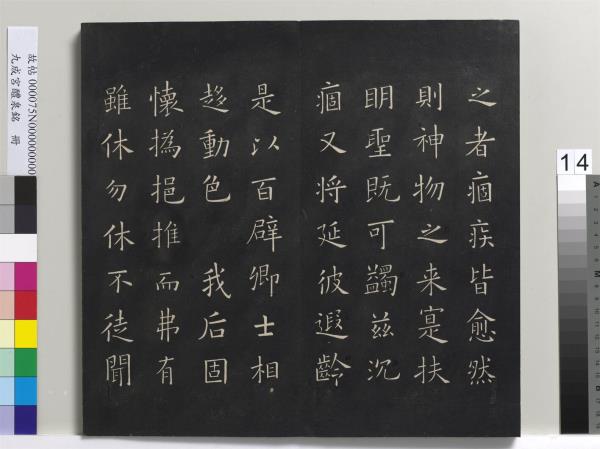 之者痼疾皆愈然
則神物之来寔扶
眀聖既可蠲兹沉
痼又将延彼遐齡
是以百辟卿士相
趍動色 我后固
懐撝挹推而弗有
雖休勿休不徒聞
故帖 000075N000000000
九成宮醴泉銘 冊
14